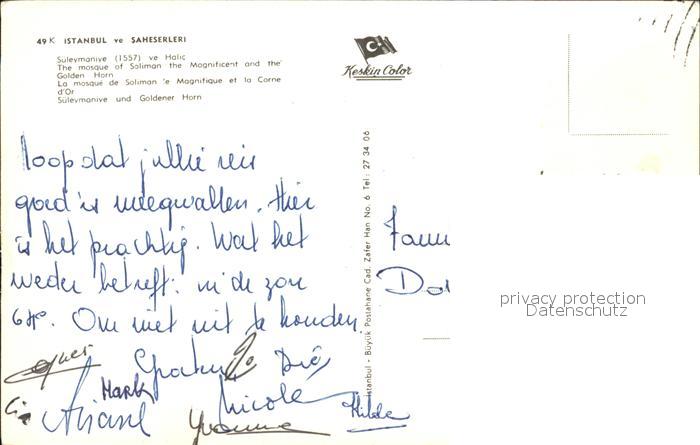 49 K İSTANBUL ve ŞAHESERLERİ
Süleymaniye (1557) ve Haliç
The mosque of Soliman the Magnificent and the
Golden Horn
La mosqué de Soliman le Magnifique et la Corne
d'Or
Süleymaniye und Goldener Horn
Keskin Color
İstanbul • Büyük Postahane Cad. Zafer Han No. 6 Tel: 27 34 06
hoop dat jullie reis
goed is meegevallen. Hier
is het prachtig. Wat het
weder betreft: in de zon
64°. Om niet uit te houden.
Mark
Nicole
Yvonne
Hilde
Fam
privacy protection
Datenschutz